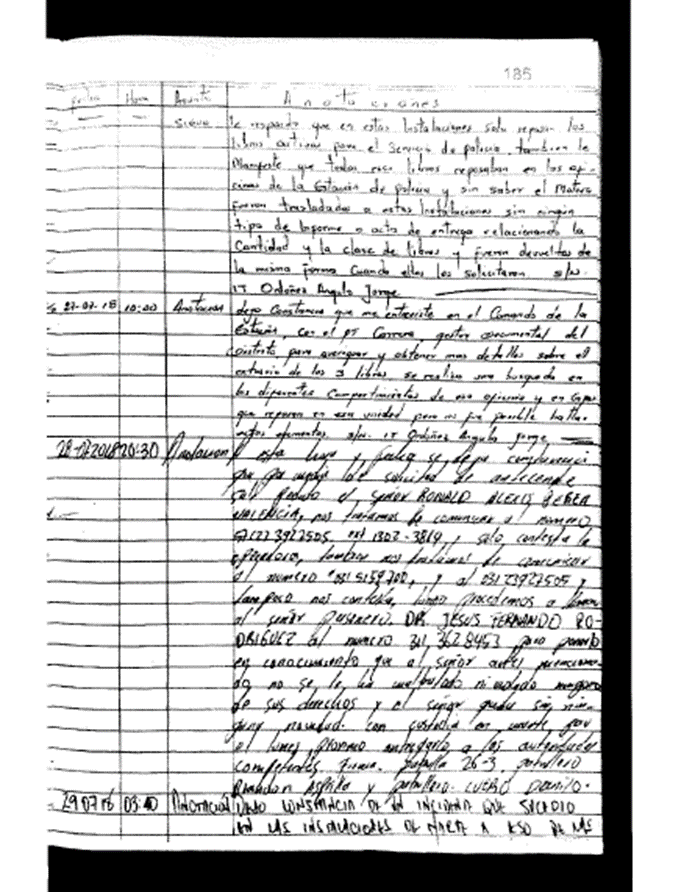 185
Fecha Hora Asunto Anotaciones
Sigue le respondo que en estas Instalaciones solo reposan los
libros activos para el Servicio de policía, tambien le
Manifeste que todos esos libros reposaban en las ofi-
cinas de la Estación de policia y sin saber el Motivo
fueron trasladados a estas Instalaciones sin ningún
tipo de Informe o acta de entrega relacionando la
Cantidad y la clase de libros y fueron devueltos de
la misma forma Cuando ellos los solicitaron. s/n.
IT Ordoñez Angulo Jorge
27-07-18 10:00 Anotacion dejo Constancia que me entreviste en el Comando de la
Estación, con el PT Correa, gestor documental del
distrito para averiguar y obtener mas detalles sobre el
de los 3 libros, se realizo una busqueda en
los diferentes Compartimientos de esa oficina y en
que reposan en esa unidad pero no fue posible hallar
estos elementos. s/n. IT Ordoñez Angulo Jorge
28-07-2018 20:30 Anotacion A esta hora y fecha se deja constancia
que por medio de solicitud de antecede
el señor RONALD ALEXIS
VALENCIA, nos tratamos de comunicar al numero
ext 1302-3819, y solo contesta la
operadora, tambien nos tratamos de comunicar
al numero 031 5159700, y al 03123927505 y
tampoco nos contesta, luego procedemos a llamar
al señor DR. JESUS FERNANDO RO-
DRIGUEZ al numero 311 3628453 para ponerlo
en conocimiento que al señor antes menciona-
do no se le ha vulnerado ni violado ninguno
de sus derechos y el señor queda sin nin-
guna novedad. con custodia en
el lunes proximo entregarlo a las autoridades
competentes firma. patrulla 26-3 patrullero
Brandon y patrullero. CUERO Danilo.
29 07 18 03:40 Anotacion DEJO CONSTANCIA DE UN QUE SUCEDIO
EN LAS INSTALACIONES DE A ESO DE LAS